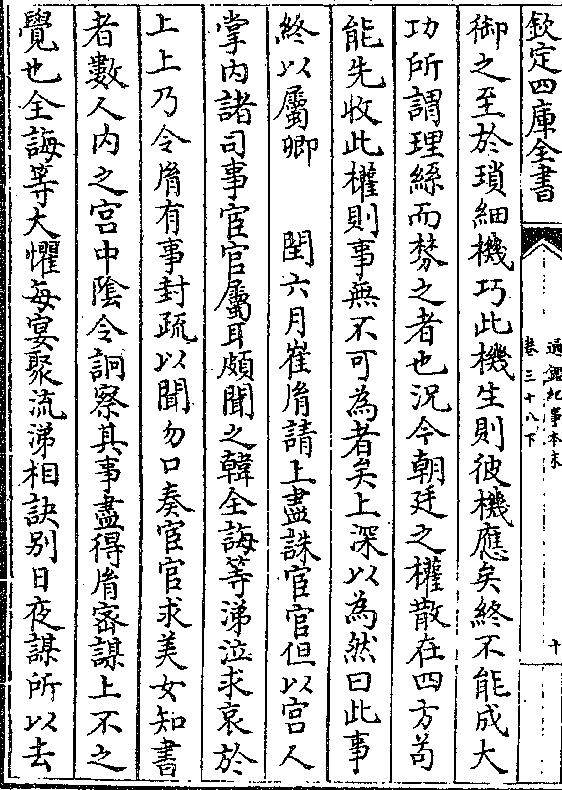 欽定四庫全書
通鑑紀事本末
卷三十八下
十
御之至於瑣細機巧此機生則彼機應矣終不能成大
功所謂理絲而棼之者也況今朝廷之權散在四方苟
能先收此權則事無不可為者矣上深以為然曰此事
終以屬卿　閏六月崔胤請上盡誅宦官但以宮人
掌內諸司事宦官屬耳頗聞之韓全誨等涕泣求哀於
上上乃令胤有事封疏以聞勿口奏宦官求美女知書
者數人內之宮中陰令詗察其事盡得胤密謀上不之
覺也全誨等大懼每宴聚流涕相訣別日夜謀所以去